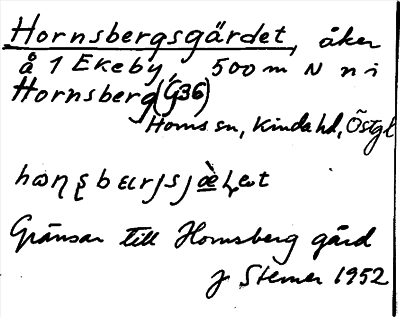 Hornsbergsgärdet, åker
å 1 Ekeby, 500 m N n i
Hornsberg (G36)
Horns sn, Kinda hd, Östgl
Gränsar till Hornsberg gård
Sterner 1952